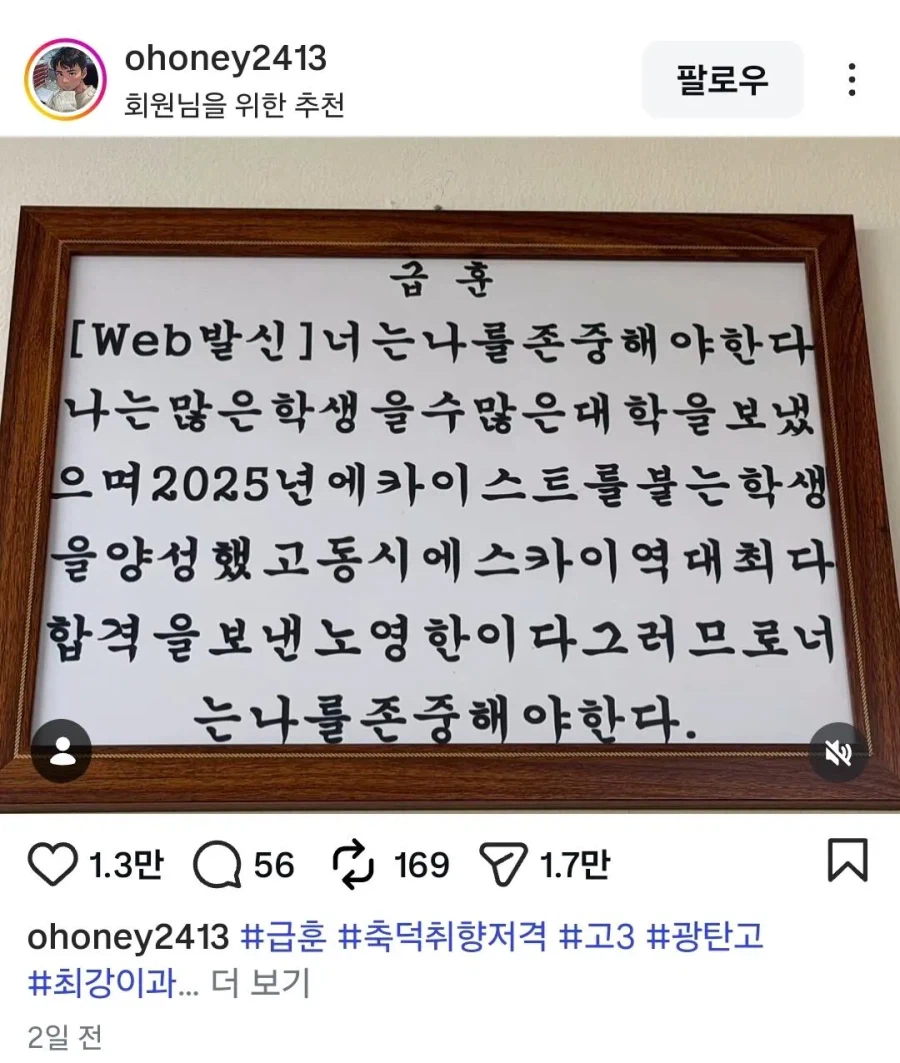 ohoney2413
회원님을 위한 추천
팔로우
급 훈
[Web발신]너는나를존중해야한다
나는많은학생을수많은대학을보냈
으며2025년에카이스트를붙는학생
을양성했고동시에스카이역대최다
합격을보낸노영한이다그러므로너
는나를존중해야한다.
1.3만 56 169 1.7만
ohoney2413 #급훈 #축덕취향저격 #고3 #광탄고
#최강이과... 더 보기
2일 전